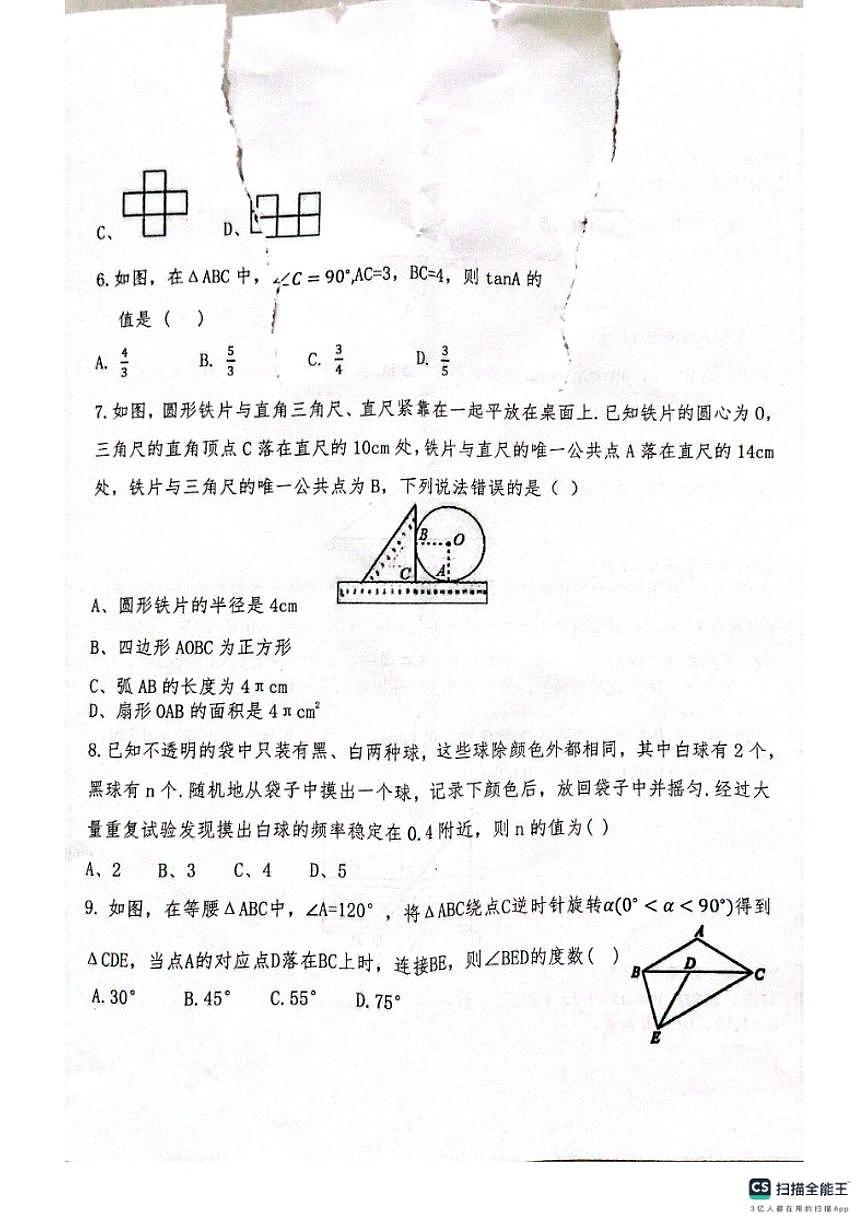 C、 D、
6.如图，在ΔABC中，∠C=90°,AC=3，BC=4，则tanA的
值是（ ）
A. 4/3 B. 5/3 C. 3/4 D. 3/5
7.如图，圆形铁片与直角三角尺、直尺紧靠在一起平放在桌面上.已知铁片的圆心为O，
三角尺的直角顶点C落在直尺的10cm处,铁片与直尺的唯一公共点A落在直尺的14cm
处，铁片与三角尺的唯一公共点为B，下列说法错误的是（ ）
B O
C A
A、圆形铁片的半径是4cm
B、四边形AOBC为正方形
C、弧AB的长度为4πcm
D、扇形OAB的面积是4πcm²
8.已知不透明的袋中只装有黑、白两种球，这些球除颜色外都相同，其中白球有2个，
黑球有n个.随机地从袋子中摸出一个球，记录下颜色后，放回袋子中并摇匀.经过大
量重复试验发现摸出白球的频率稳定在0.4附近，则n的值为( )
A、2 B、3 C、4 D、5
9. 如图，在等腰ΔABC中，∠A=120°，将ΔABC绕点C逆时针旋转α(0°<α<90°)得到
ΔCDE，当点A的对应点D落在BC上时，连接BE，则∠BED的度数( )
A.30° B.45° C.55° D.75°
A
B D C
E
CS 扫描全能王
3亿人都在用的扫描App